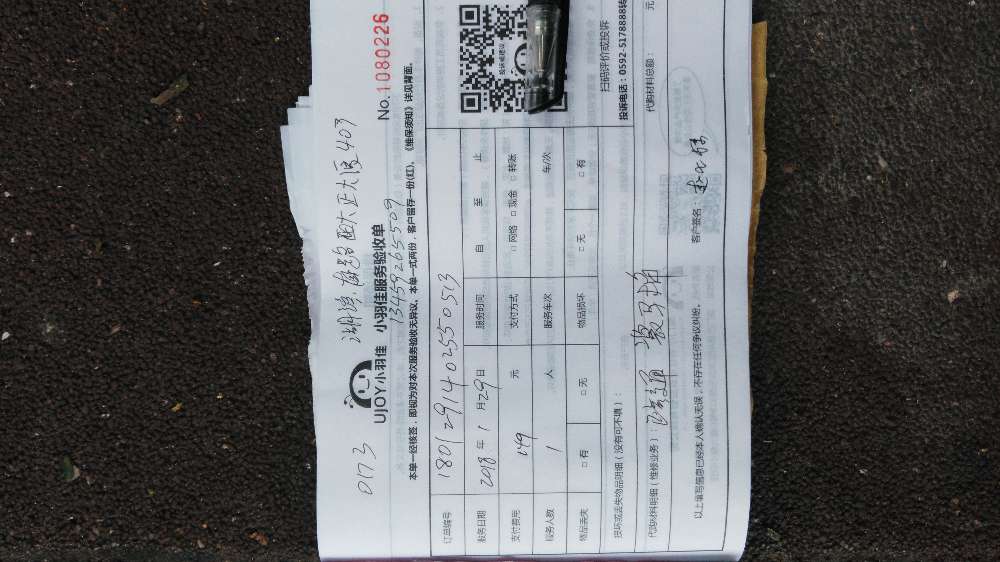 No.1080226
0173
UJOY小羽佳 小羽佳服务验收单
13459265509
本单一经核签，即视为对本次服务验收无异议。本单一式两份，客户留存一份(红)。《维保须知》详见背面。
订单编号 1801291402550513
服务日期 2018 年 1 月 29 日 服务时间 自 至 止
支付费用 149 元 支付方式 □ 网络 □ 现金 □ 转账
服务人数 1 人 服务车次 车/次
物品丢失 □ 有 □ 无 物品损坏 □ 无 □ 有
投诉或建议
扫码评价或投诉
投诉电话：0592-5178888转
损坏或丢失物品明细（没有可不填）：
代购材料明细（维修业务）：
代购材料总额： 元
以上填写信息已经本人确认无误，不存在任何争议纠纷。
客户签名：